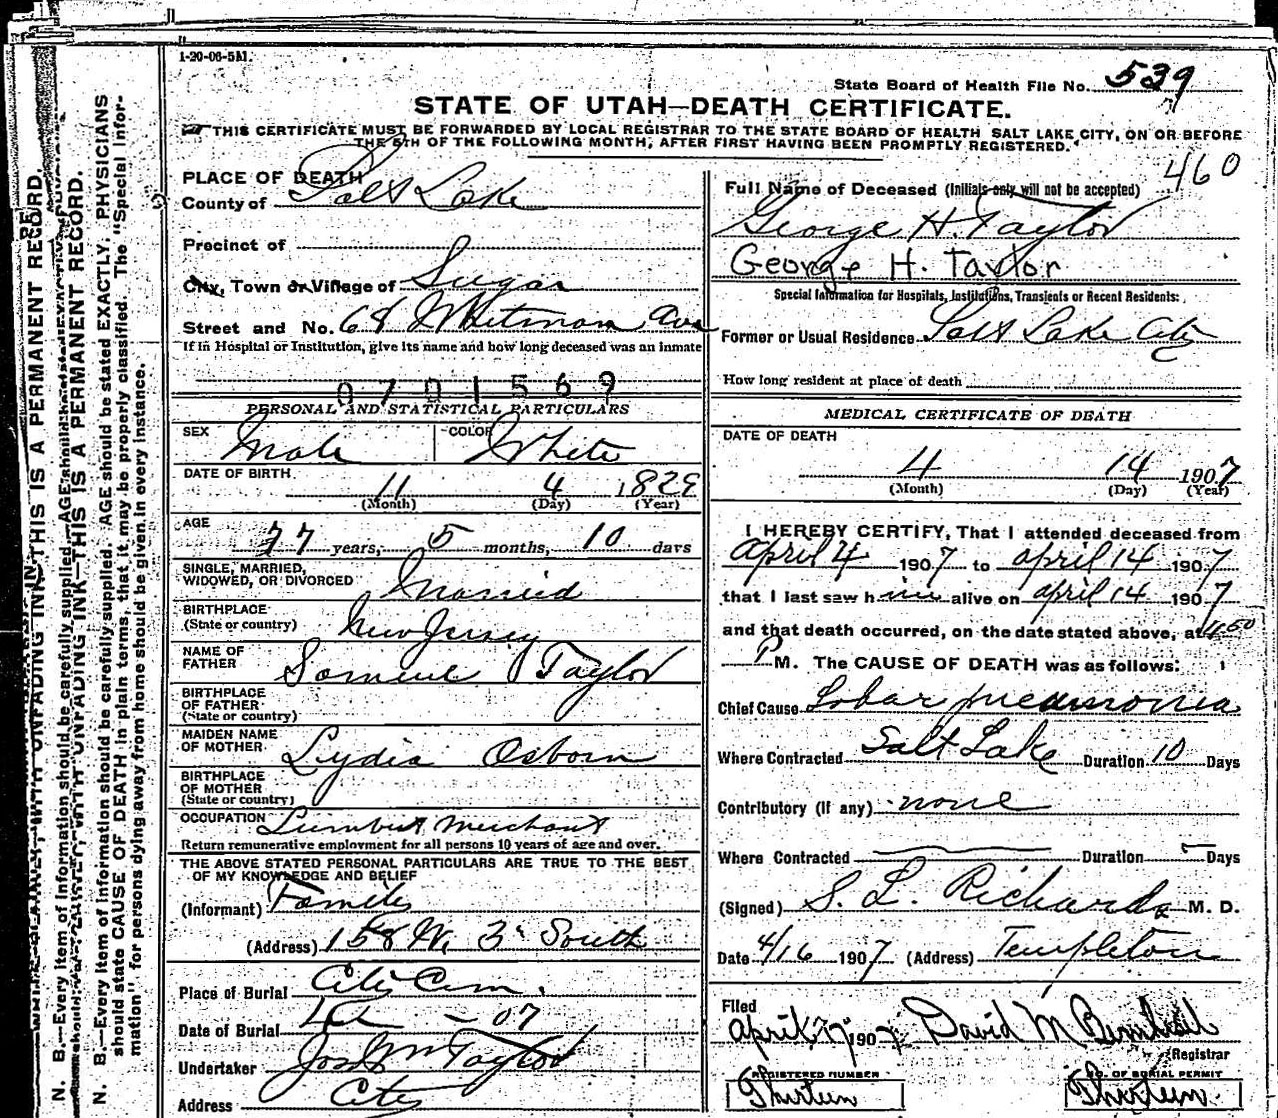 1-20-06-5M.
State Board of Health File No. 539
STATE OF UTAH—DEATH CERTIFICATE.
THIS CERTIFICATE MUST BE FORWARDED BY LOCAL REGISTRAR TO THE STATE BOARD OF HEALTH SALT LAKE CITY, ON OR BEFORE
THE 5TH OF THE FOLLOWING MONTH, AFTER FIRST HAVING BEEN PROMPTLY REGISTERED.
460
PLACE OF DEATH
County of Salt Lake
Precinct of
City, Town or Village of Sugar
Street and No. 68 Whitman Ave
If in Hospital or Institution, give its name and how long deceased was an inmate
0701569
PERSONAL AND STATISTICAL PARTICULARS
SEX Male COLOR White
DATE OF BIRTH
11 4 1829
(Month) (Day) (Year)
AGE
77 years, 5 months, 10 days
SINGLE, MARRIED,
WIDOWED, OR DIVORCED Married
BIRTHPLACE
(State or country) New Jersey
NAME OF
FATHER Samuel Taylor
BIRTHPLACE
OF FATHER
(State or country)
MAIDEN NAME
OF MOTHER Lydia Osborn
BIRTHPLACE
OF MOTHER
(State or country)
OCCUPATION Lumber Merchant
Return remunerative employment for all persons 10 years of age and over.
THE ABOVE STATED PERSONAL PARTICULARS ARE TRUE TO THE BEST
OF MY KNOWLEDGE AND BELIEF
(Informant) Family
(Address) 158 W. 3d South
Place of Burial City Cem.
Date of Burial - 07
Undertaker Jos Wm Taylor
Address City
Full Name of Deceased (Initials only will not be accepted)
George H. Taylor
George H. Taylor
Special Information for Hospitals, Institutions, Transients or Recent Residents:
Former or Usual Residence Salt Lake City
How long resident at place of death
MEDICAL CERTIFICATE OF DEATH
DATE OF DEATH
4 14 1907
(Month) (Day) (Year)
I HEREBY CERTIFY, That I attended deceased from
April 4 1907 to April 14 1907
that I last saw him alive on April 14 1907
and that death occurred, on the date stated above, at
P M. The CAUSE OF DEATH was as follows:
Chief Cause Lobar pneumonia
Where Contracted Salt Lake Duration 10 Days
Contributory (if any) none
Where Contracted Duration Days
(Signed) S. L. Richards M. D.
Date 4/16 1907 (Address) Templeton
Filed
April 1907 David M
Registrar
REGISTERED NUMBER
Thirteen
NO. OF BURIAL PERMIT
Thirteen
N. B.—Every item of information should be carefully supplied. AGE should be stated EXACTLY. PHYSICIANS
should state CAUSE OF DEATH in plain terms, that it may be properly classified. The "Special Infor-
mation" for persons dying away from home should be given in every instance.